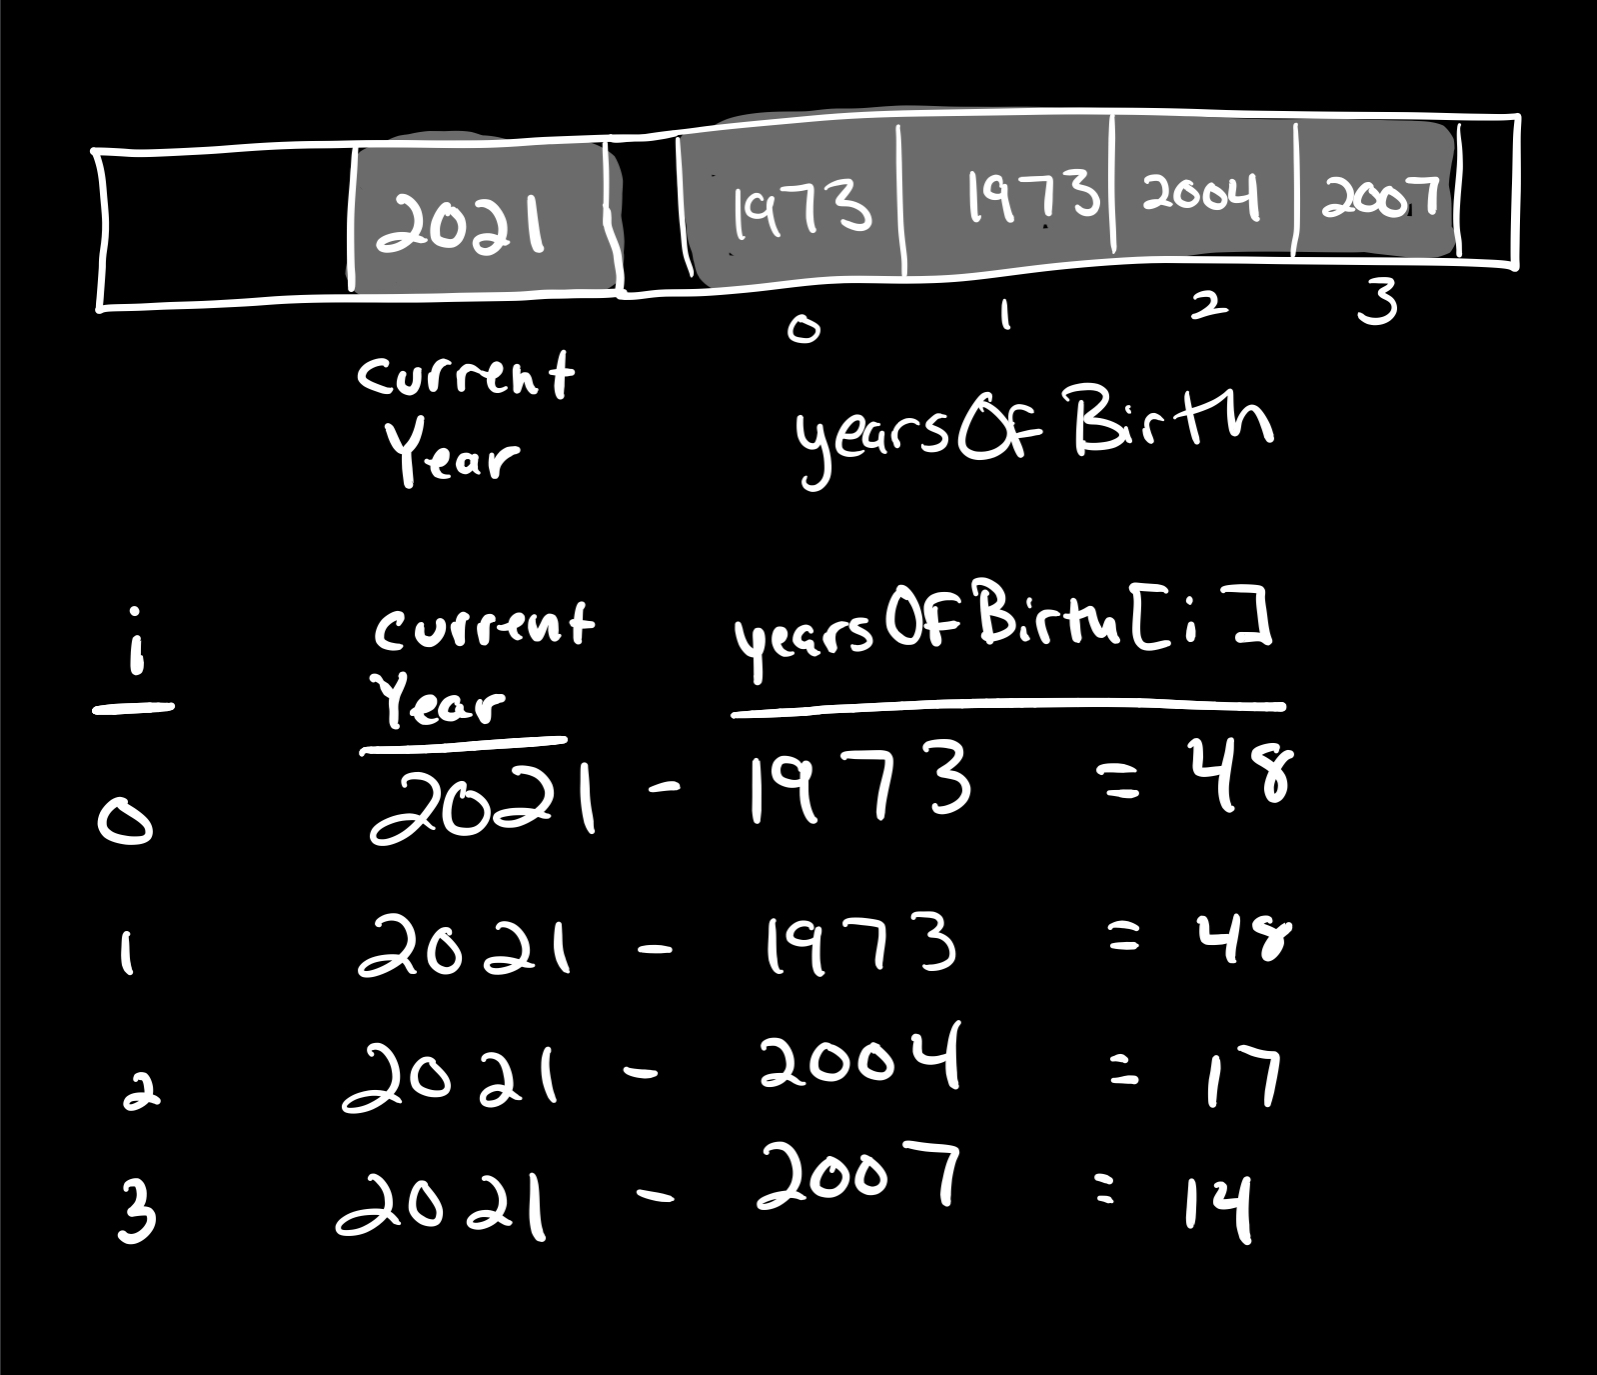 2021 1973 1973 2004 2007
0 1 2 3
current
Year
yearsOfBirth
i current yearsOfBirth[i]
Year
0 2021 - 1973 = 48
1 2021 - 1973 = 48
2 2021 - 2004 = 17
3 2021 - 2007 = 14